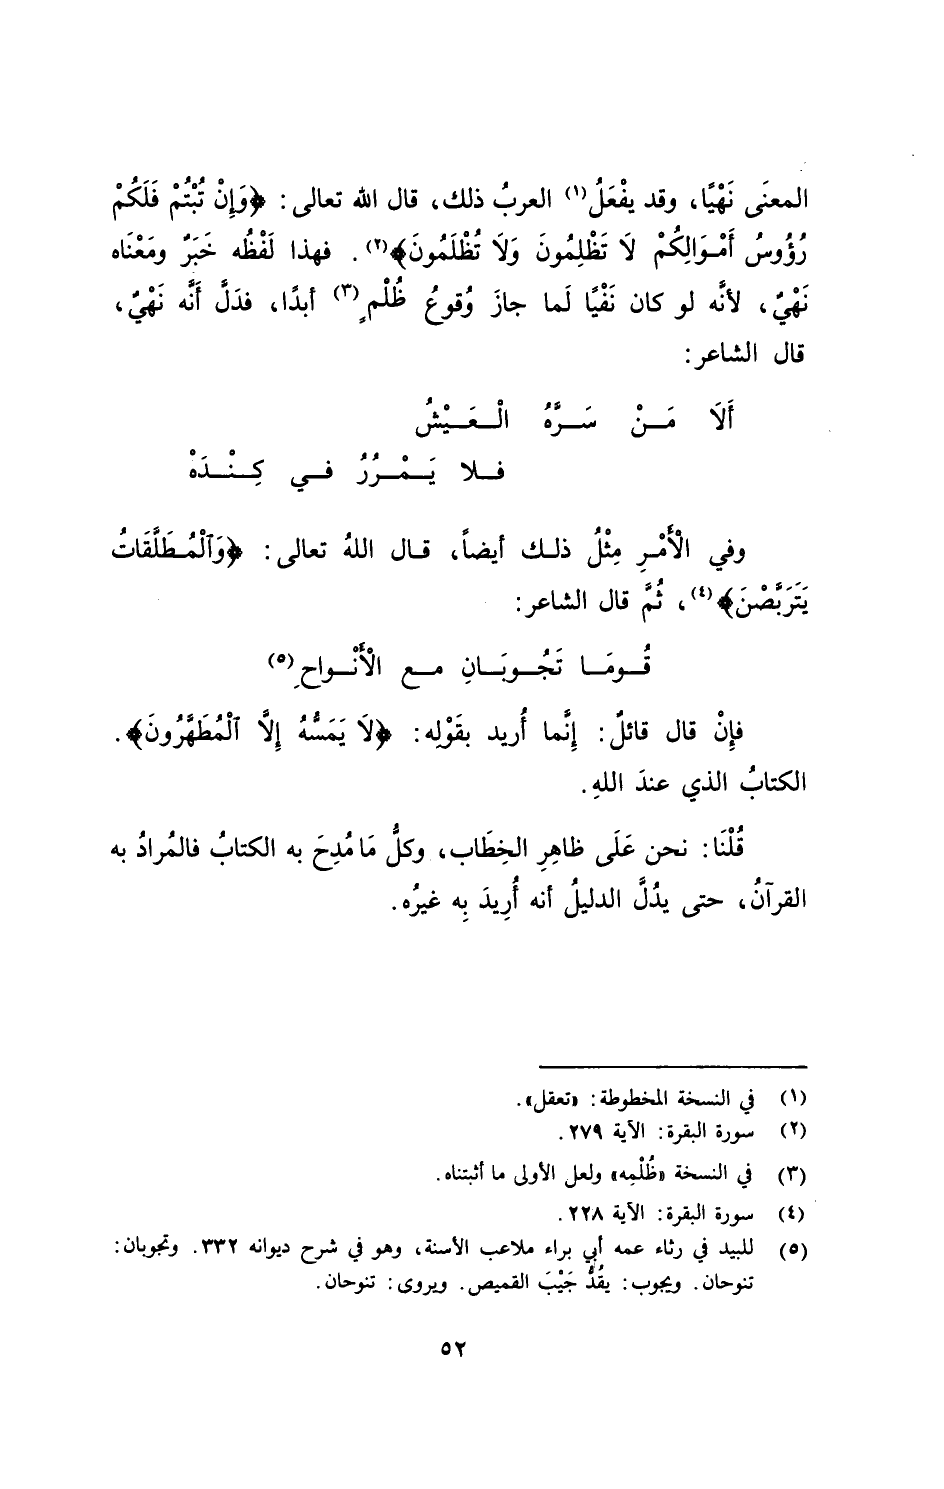 المعنَى نَهْيًا، وقد يفْعَلُ(١) العربُ ذلك، قال الله تعالى: ﴿وَإِنْ تُبْتُمْ فَلَكُمْ
رُؤُوسُ أَمْوَالِكُمْ لَا تَظْلِمُونَ وَلَا تُظْلَمُونَ﴾(٢). فهذا لَفْظُه خَبَرٌ ومَعْنَاه
نَهْيٌ، لأنَّه لو كان نَفْيًا لَما جازَ وُقوعُ ظُلْمٍ(٣) أبدًا، فدَلَّ أَنَّه نَهْيٌ،
قال الشاعر:
أَلَا مَنْ سَرَّهُ الْعَيْشُ
فلا يَمْرُرُ في كِنْدَهْ
وفي الْأَمْرِ مِثْلُ ذلك أيضاً، قال اللهُ تعالى: ﴿وَٱلْمُطَلَّقَاتُ
يَتَرَبَّصْنَ﴾(٤)، ثُمَّ قال الشاعر:
قُومَا تَجُوبَانِ مع الْأَنْواحِ(٥)
فإنْ قال قائلٌ: إنَّما أُريد بقَوْلِه: ﴿لَا يَمَسُّهُ إِلَّا ٱلْمُطَهَّرُونَ﴾.
الكتابُ الذي عندَ اللهِ.
قُلْنَا: نحن عَلَى ظاهِرِ الخِطَاب، وكلُّ مَا مُدِحَ به الكتابُ فالمُرادُ به
القرآنُ، حتى يدُلَّ الدليلُ أنه أُرِيدَ بِه غيرُه.
(١) في النسخة المخطوطة: «تعقل».
(٢) سورة البقرة: الآية ٢٧٩.
(٣) في النسخة «ظُلْمِه» ولعل الأولى ما أثبتناه.
(٤) سورة البقرة: الآية ٢٢٨.
(٥) للبيد في رثاء عمه أبي براء ملاعب الأسنة، وهو في شرح ديوانه ٣٣٢. وتجوبان:
تنوحان. ويجوب: يقُدُّ جَيْبَ القميص. ويروى: تنوحان.
٥٢